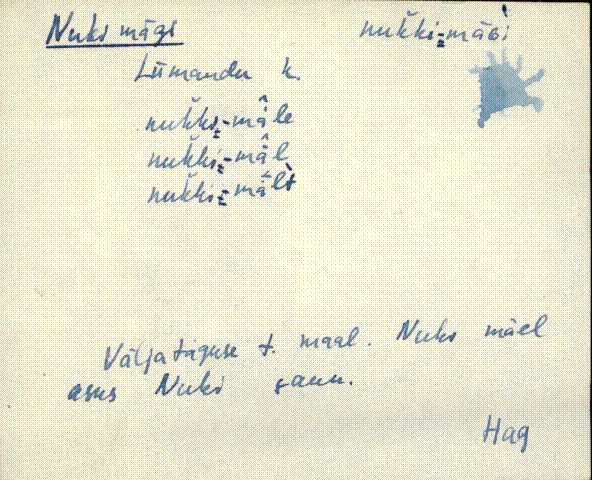 Nuki mägi nuk̆ki-mäɢi
Liimandu k.
nuk̆ki-mä̂le
nuk̆ki-mä̂l
nuk̆ki-mä̂lt
Väljataguse t. maal. Nuki mäel
asus Nuki saun.
Hag